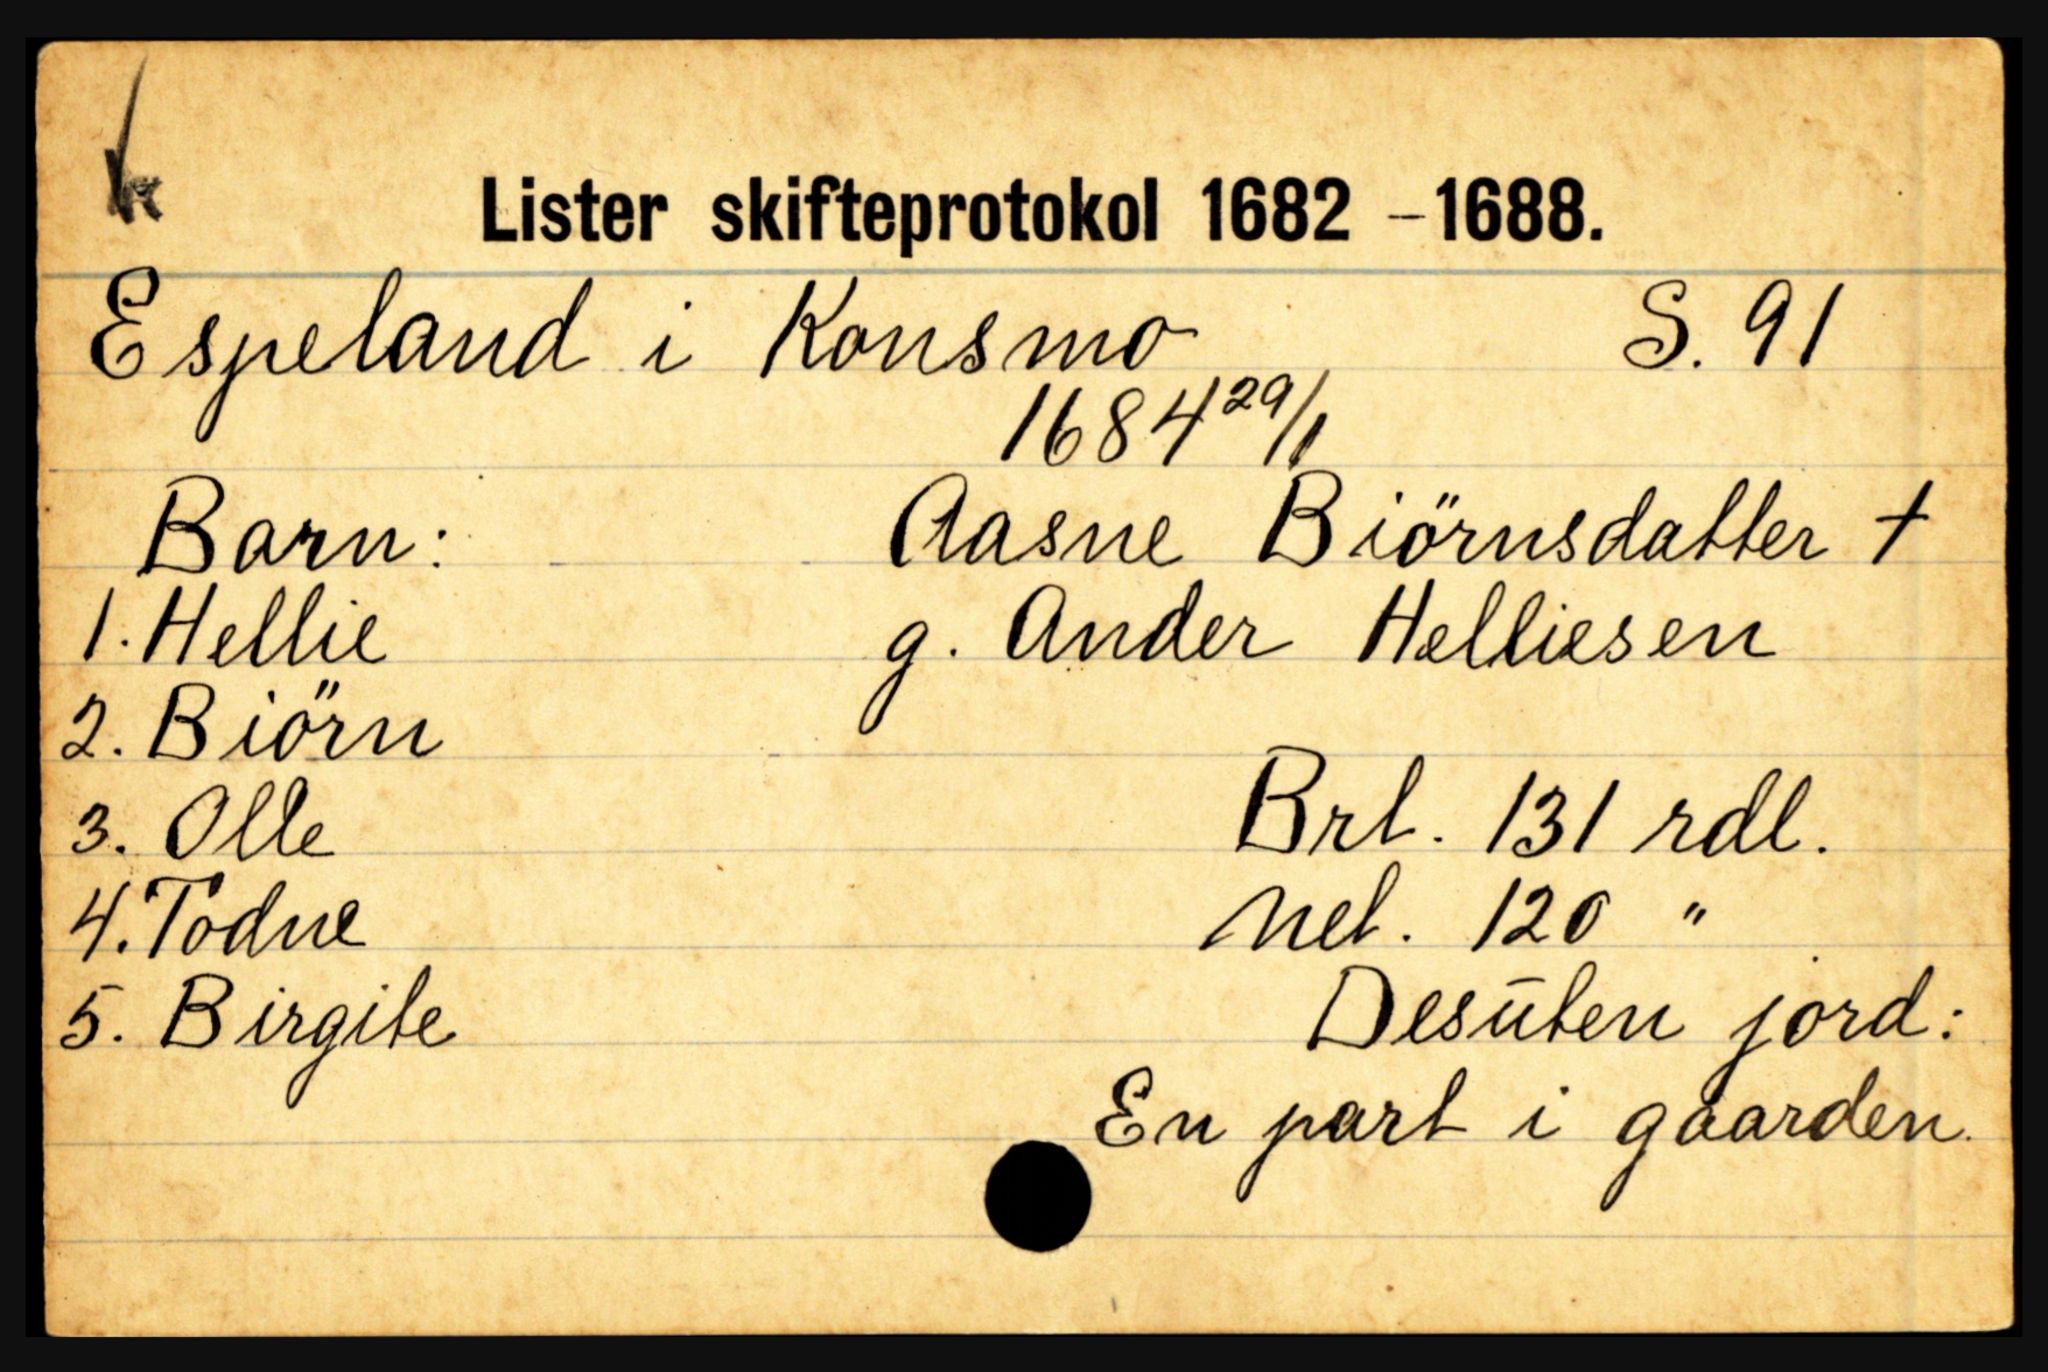 Lister skifteprotokol 1682 – 1688.
Espeland i Konsmo S. 91
1684 29/1
Barn: Aasne Biörnsdatter †
1. Hellie g. Ander Helliesen
2. Biörn
3. Olle Brt. 131 rdl.
4. Todne Net. 120 "
5. Birgite Desūten jord:
En part i gaarden.